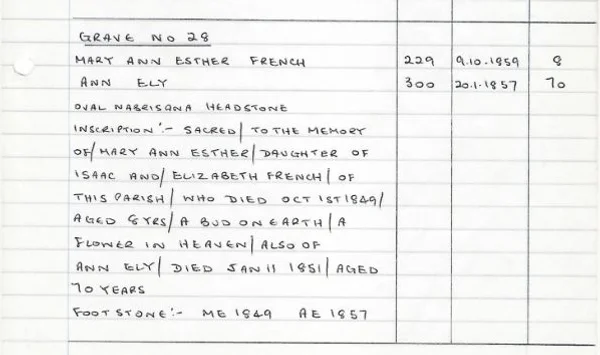 GRAVE NO 28
MARY ANN ESTHER FRENCH 229 9.10.1859 8
ANN ELY 300 20.1.1857 70
OVAL NABRISANA HEADSTONE
INSCRIPTION:- SACRED/ TO THE MEMORY
OF/ MARY ANN ESTHER/ DAUGHTER OF
ISAAC AND/ ELIZABETH FRENCH/ OF
THIS PARISH/ WHO DIED OCT 1ST 1849/
AGED 8 YRS/ A BUD ON EARTH/ A
FLOWER IN HEAVEN/ ALSO OF
ANN ELY/ DIED JAN 11 1851/ AGED
70 YEARS
FOOTSTONE:- ME 1849 AE 1857